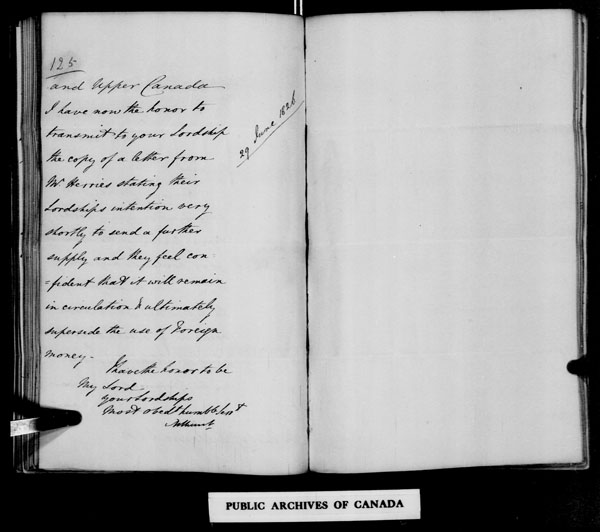 125
and Upper Canada
I have now the honor to
transmit to your Lordship
the copy of a letter from
Mr Herries stating their
Lordships intention very
shortly to send a further
supply and they feel con=
=fident that it will remain
in circulation & ultimately
superside the use of Foreign
money.
I have the honor to be
My Lord
your Lordships
Most obedt humble servt
Bathurst
29 June 1826
PUBLIC ARCHIVES OF CANADA